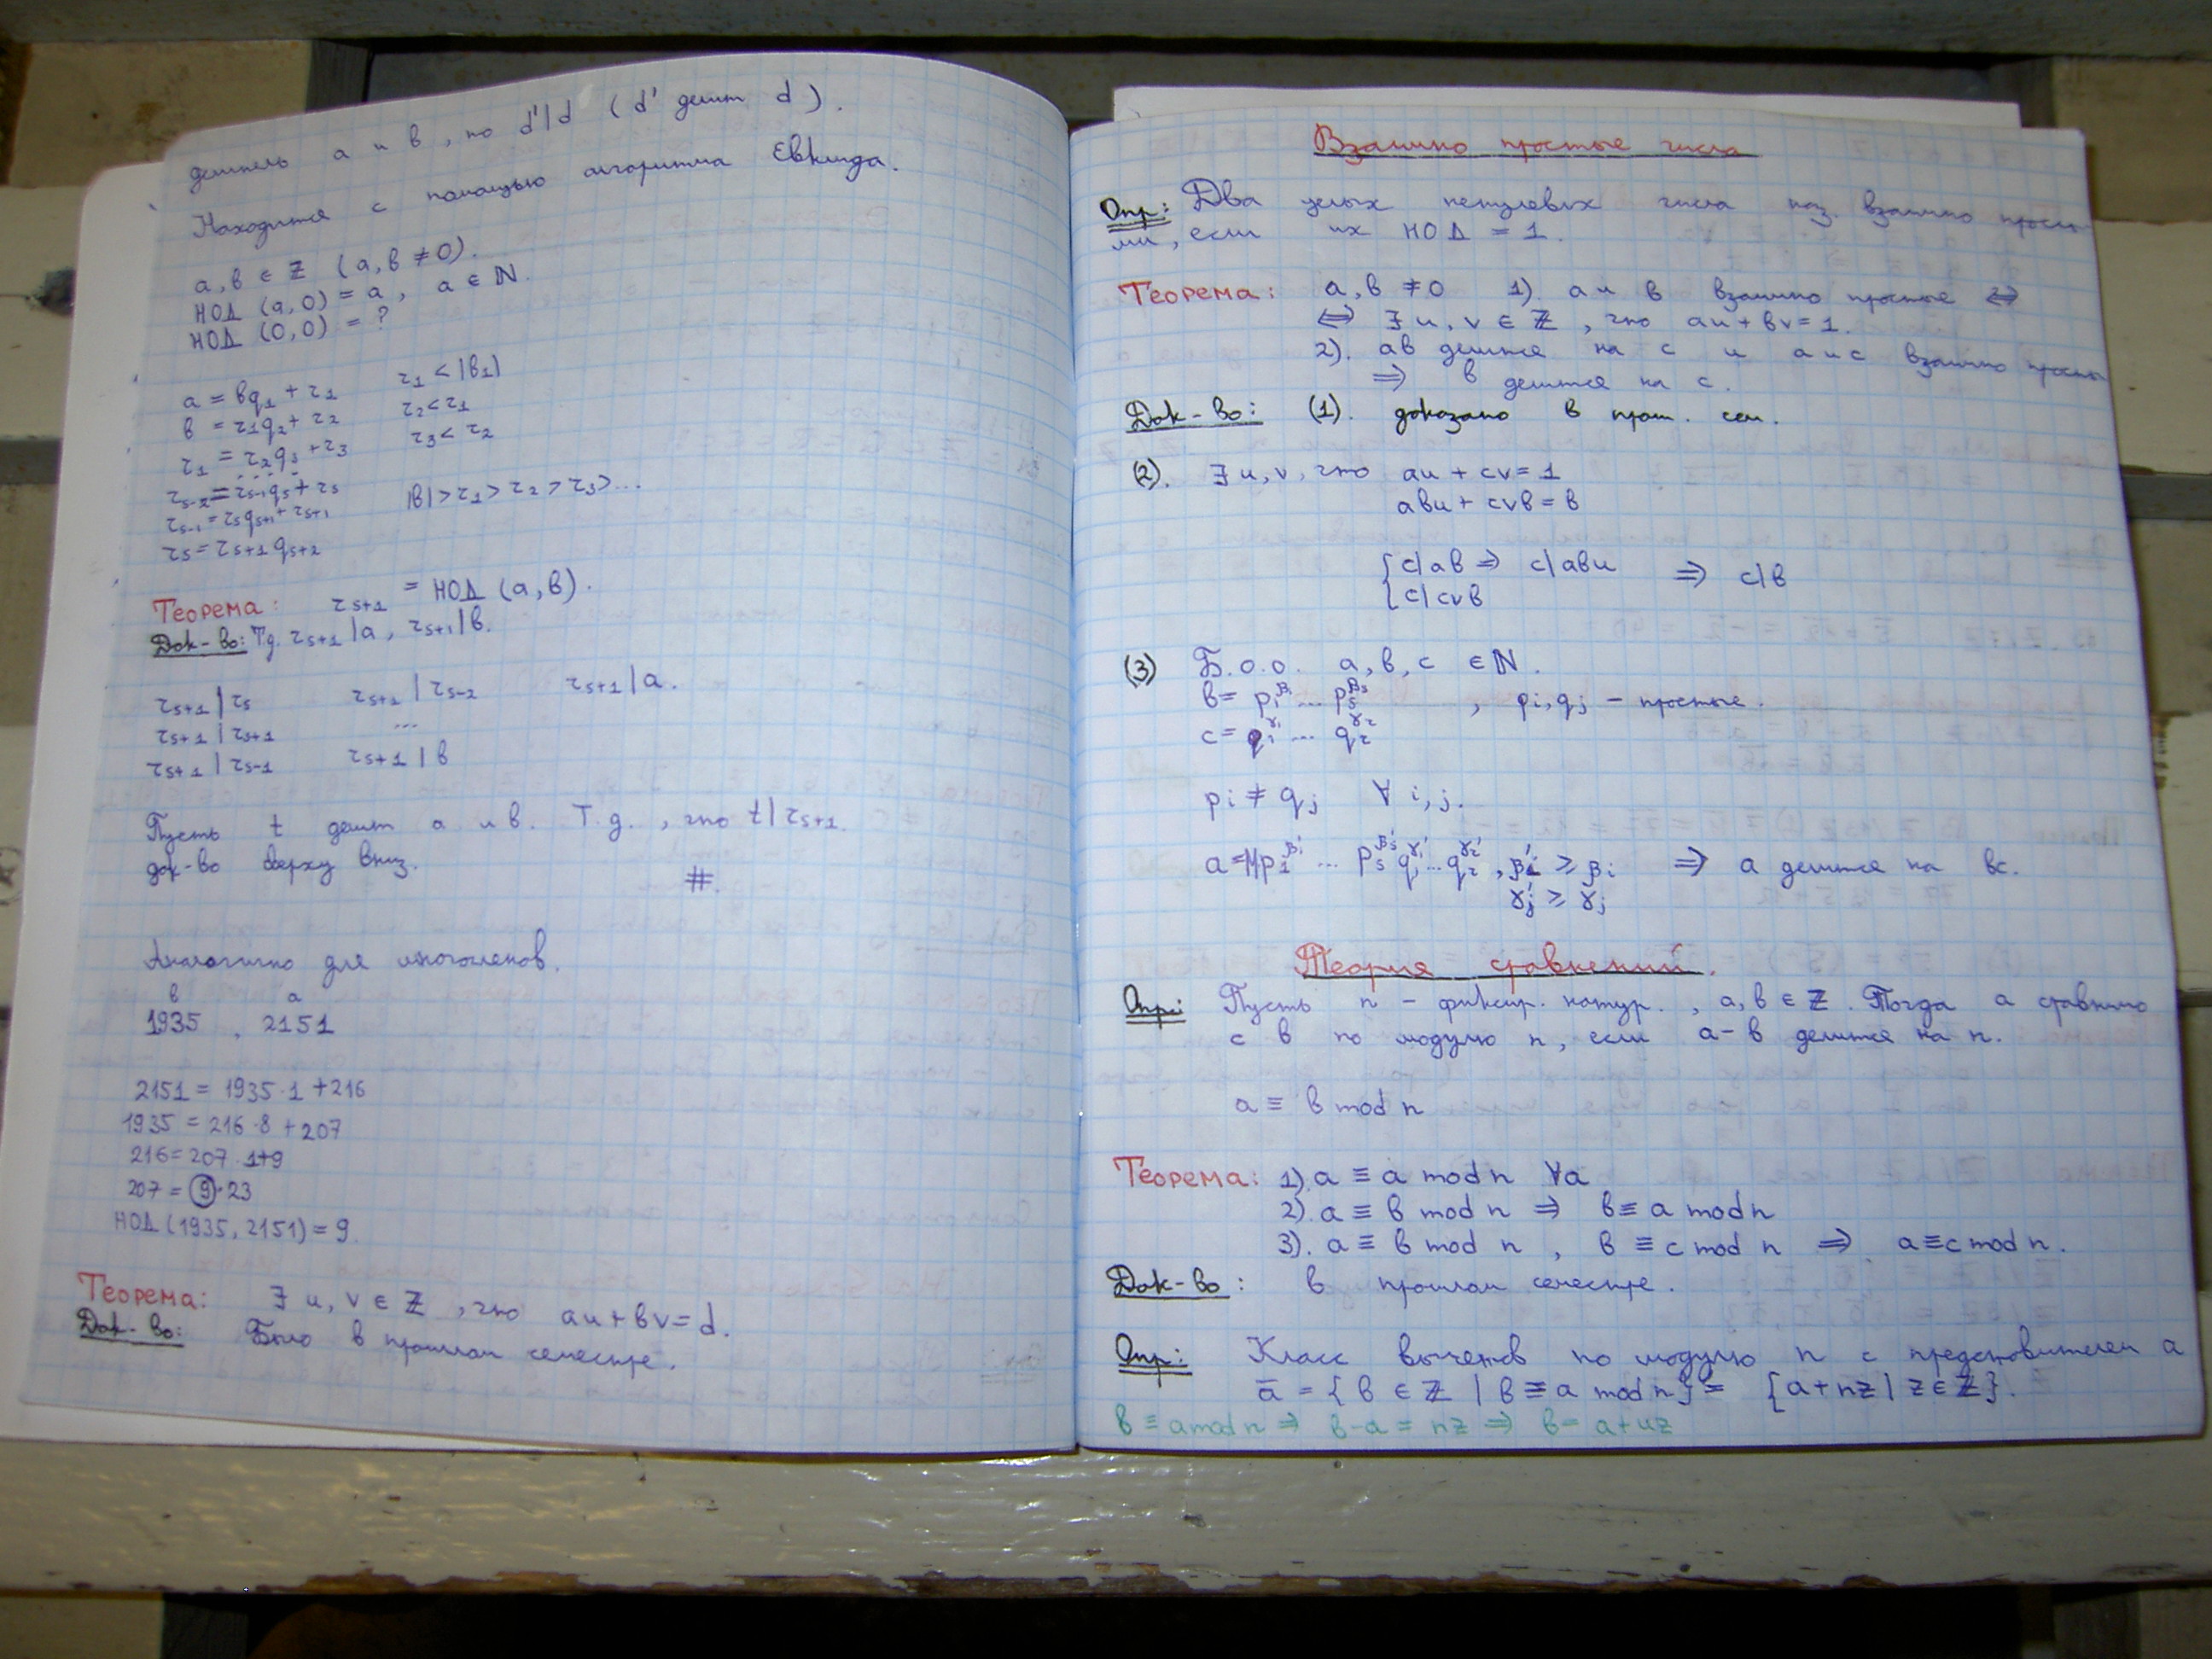 делитель a и b, то d'|d (d' делит d).
Находится с помощью алгоритма Евклида.
a, b ∈ ℤ (a, b ≠ 0).
НОД (a, 0) = a, a ∈ ℕ.
НОД (0, 0) = ?
a = bq₁ + r₁ r₁ < |b₁|
b = r₁q₂ + r₂ r₂ < r₁
r₁ = r₂q₃ + r₃ r₃ < r₂
...
rₛ₋₂ = rₛ₋₁qₛ + rₛ |b| > r₁ > r₂ > r₃ > ...
rₛ₋₁ = rₛqₛ₊₁ + rₛ₊₁
rₛ = rₛ₊₁qₛ₊₂
Теорема: rₛ₊₁ = НОД (a, b).
Док-во: Т.д. rₛ₊₁|a, rₛ₊₁|b.
rₛ₊₁|rₛ rₛ₊₁|rₛ₋₂ rₛ₊₁|a.
rₛ₊₁|rₛ₊₁ ...
rₛ₊₁|rₛ₋₁ rₛ₊₁|b
Пусть t делит a и b. Т.д., что t|rₛ₊₁.
док-во сверху вниз.
#.
Аналогично для многочленов.
b a
1935, 2151
2151 = 1935·1 + 216
1935 = 216·8 + 207
216 = 207·1 + 9
207 = 9·23
НОД (1935, 2151) = 9.
Теорема: ∃ u, v ∈ ℤ, что au + bv = d.
Док-во: Было в прошлом семестре.
Взаимно простые числа
Опр: Два целых ненулевых числа наз. взаимно просты-
ми, если их НОД = 1.
Теорема: a, b ≠ 0 1). a и b взаимно простые ⇔
⇔ ∃ u, v ∈ ℤ, что au + bv = 1.
2). ab делится на c и a и c взаимно просты
⇒ b делится на c.
Док-во: (1). доказано в прош. сем.
(2). ∃ u, v, что au + cv = 1
abu + cvb = b
{ c|ab ⇒ c|abu ⇒ c|b
{ c|cvb
(3) Б.о.о. a, b, c ∈ ℕ.
b = p₁^β₁ ... pₛ^βₛ , pᵢ, qⱼ – простые.
c = q₁^γ₁ ... qᵣ^γᵣ
pᵢ ≠ qⱼ ∀ i, j.
a = Mp₁^β₁' ... pₛ^βₛ' q₁^γ₁' ... qᵣ^γᵣ', βᵢ' ≥ βᵢ ⇒ a делится на bc.
γⱼ' ≥ γⱼ
Теория сравнений.
Опр: Пусть n – фиксир. натур., a, b ∈ ℤ. Тогда a сравнимо
с b по модулю n, если a – b делится на n.
a ≡ b mod n
Теорема: 1). a ≡ a mod n ∀a
2). a ≡ b mod n ⇒ b ≡ a mod n
3). a ≡ b mod n, b ≡ c mod n ⇒ a ≡ c mod n.
Док-во: в прошлом семестре.
Опр: Класс вычетов по модулю n с представителем a
ā = {b ∈ ℤ | b ≡ a mod n} = {a + nz | z ∈ ℤ}.
b ≡ a mod n ⇒ b – a = nz ⇒ b = a + nz